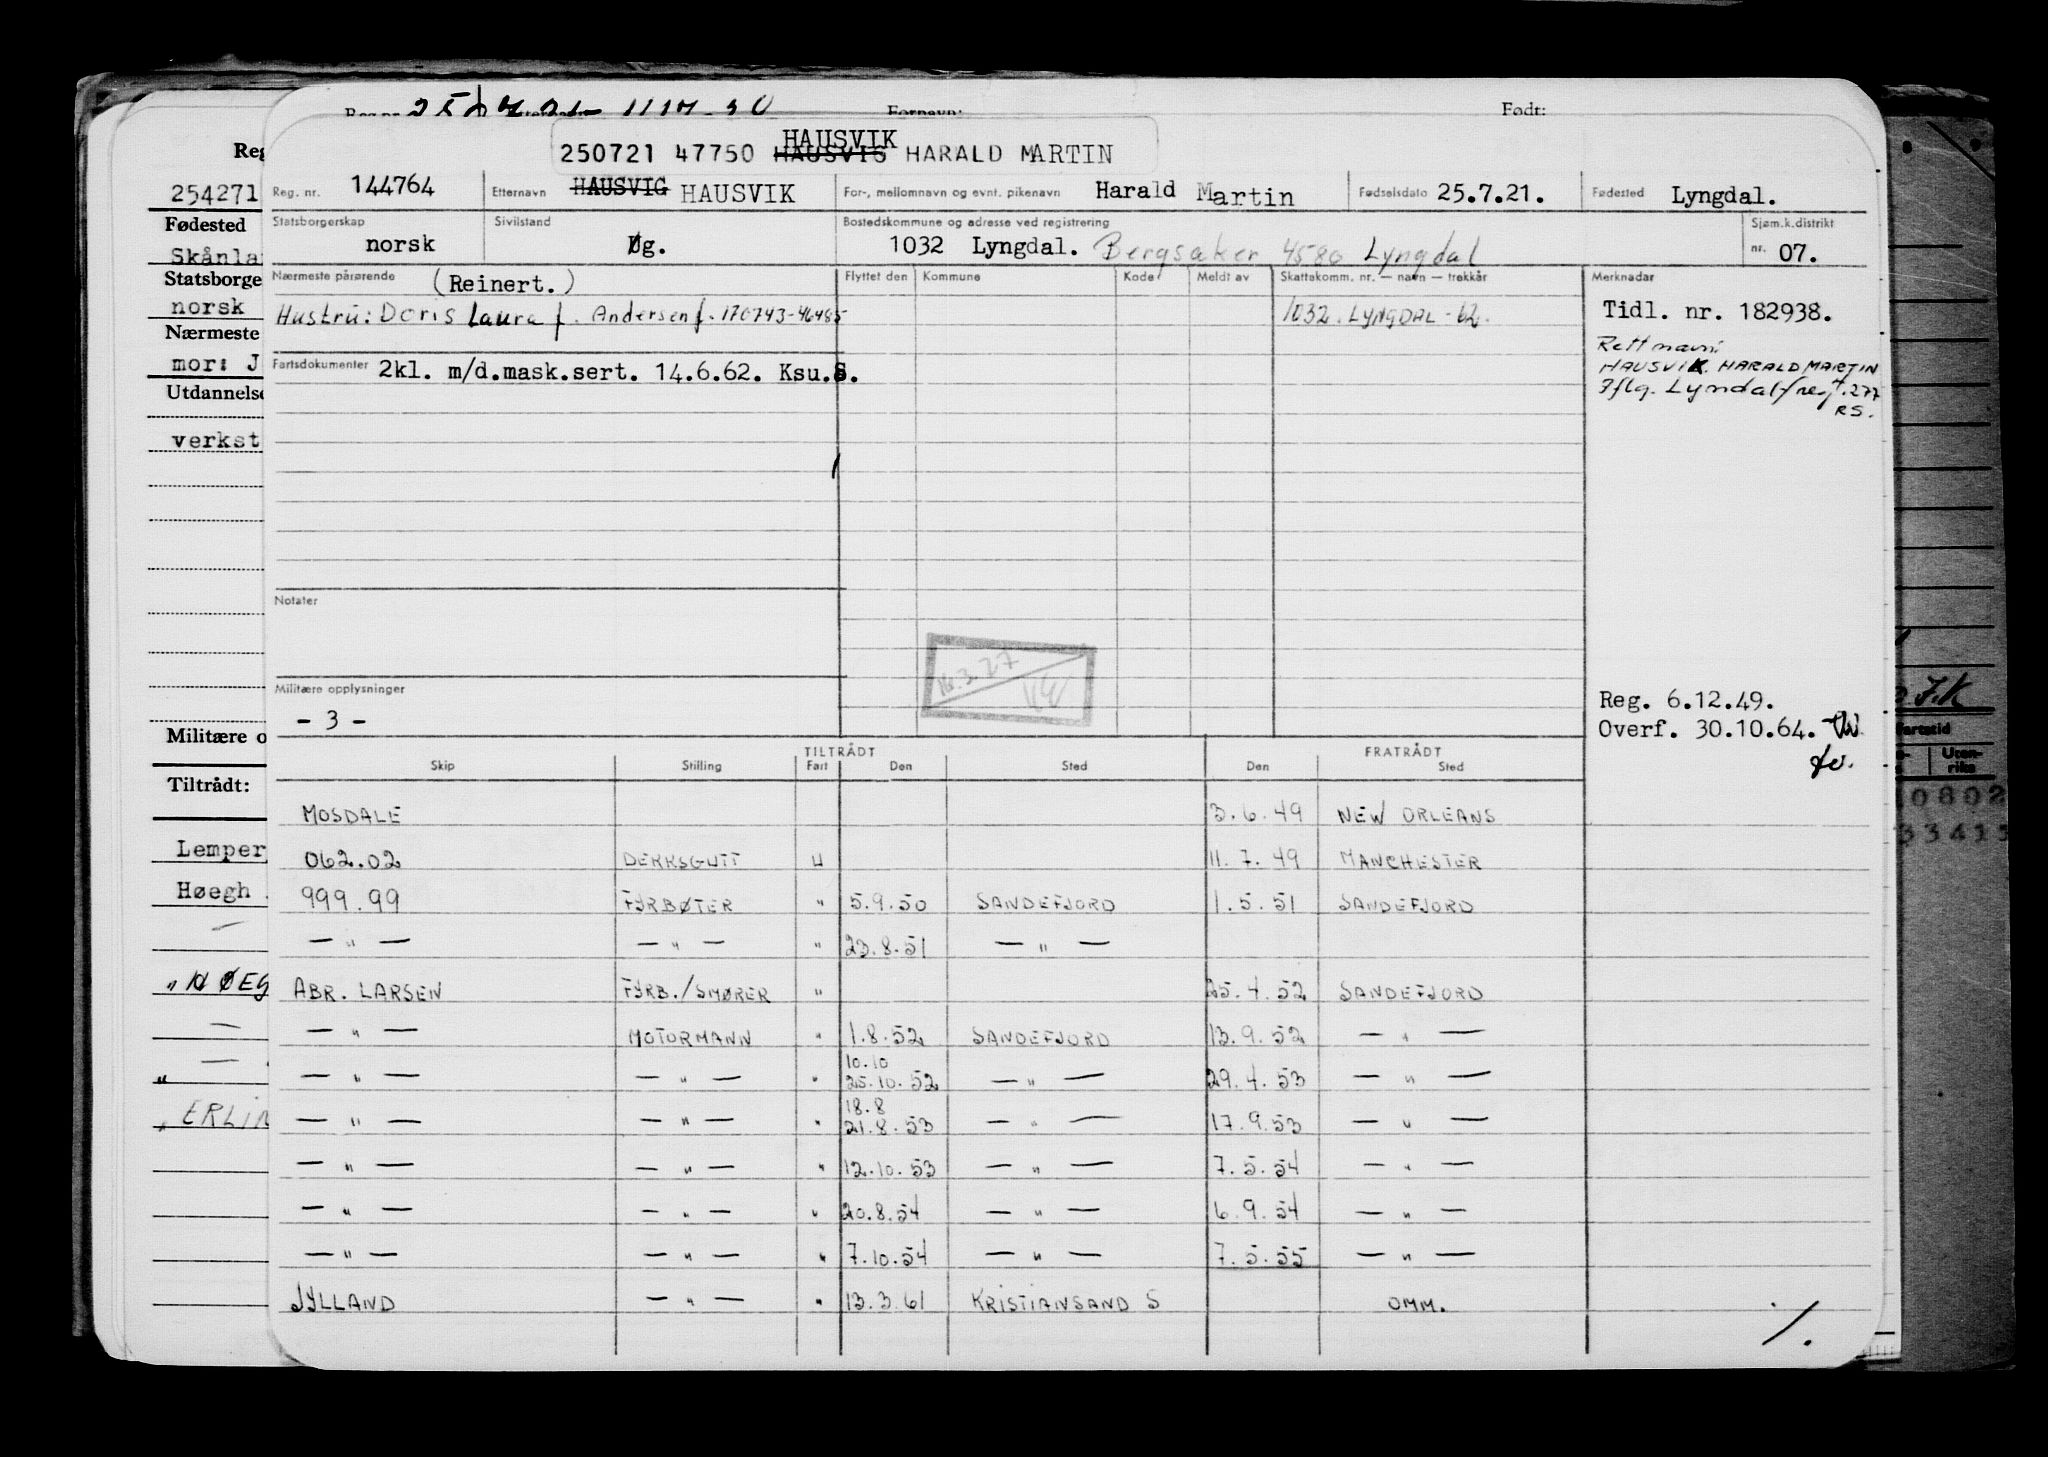 Reg.nr. Fornavn: Født:
HAUSVIK
250721 47750 HAUSVIG HARALD MARTIN
Reg. nr. 144764 Etternavn HAUSVIG HAUSVIK For-, mellomnavn og evnt. pikenavn Harald Martin Fødselsdato 25.7.21. Fødested Lyngdal.
Statsborgerskap norsk Sivilstand Øg. Bostedskommune og adresse ved registrering 1032 Lyngdal. Bergsaker 4580 Lyngdal Sjøm.k.distrikt nr. 07.
Nærmeste pårørende (Reinert.) Flyttet den Kommune Kode Meldt av Skattekomm. nr. — navn — trekkår Merknadar
Hustru: Doris Laura f. Andersen f. 170743-46485 1032 LYNGDAL - 62. Tidl. nr. 182938.
Rett navn:
HAUSVIK HARALD MARTIN
Iflg. Lyndal
RS.
Fartsdokumenter 2kl. m/d.mask.sert. 14.6.62. Ksu.S.
Notater
Militære opplysninger
- 3 -
Reg. 6.12.49.
Overf. 30.10.64.
TILTRÅDT FRATRÅDT
Skip Stilling Fart Den Sted Den Sted
MOSDALE 3.6.49 NEW ORLEANS
062.02 DEKKSGUTT U 11.7.49 MANCHESTER
999.99 FYRBØTER " 5.9.50 SANDEFJORD 1.5.51 SANDEFJORD
— " — — " — " 23.8.51 — " —
ABR. LARSEN FYRB./SMØRER " 25.4.52 SANDEFJORD
— " — MOTORMANN " 1.8.52 SANDEFJORD 13.9.52 — " —
10.10
— " — — " — " 25.10.52 — " — 29.4.53 — " —
18.8
— " — — " — " 21.8.53 — " — 17.9.53 — " —
— " — — " — " 12.10.53 — " — 7.5.54 — " —
— " — — " — " 20.8.54 — " — 6.9.54 — " —
— " — — " — " 7.10.54 — " — 7.5.55 — " —
JYLLAND — " — " 13.3.61 KRISTIANSAND S OMM.
Reg
254271
Fødested
Skånla
Statsborge
norsk
Nærmeste
mor: J
Utdannelse
verkst
Militære o
Tiltrådt:
Lemper
Høegh
" HØEG
" ERLIN
J.K
Fartstid
Uten-
riks
0802